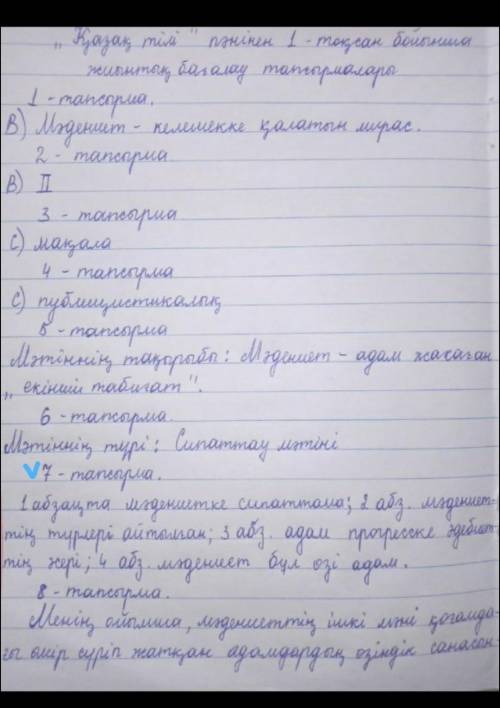 „Қазақ тілі" пәнінен 1 - тоқсан бойынша
жиынтық бағалау тапсырмалары
1 - тапсырма.
В) Мәдениет - келешекке қалатын мирас.
2 - тапсырма
В) II
3 - тапсырма
С) мақала
4 - тапсырма
С) публицистикалық
5 - тапсырма
Мәтіннің тақырыбы: Мәдениет - адам жасаған
„екінші табиғат".
6 - тапсырма.
Мәтіннің түрі: Сипаттау мәтіні
7 - тапсырма.
1 абзацта мәдениетке сипаттама; 2 абз. мәдениет-
тің түрлері айтылған; 3 абз. адам прогресске әдебиет-
тің жері; 4 абз. мәдениет бұл өзі адам.
8 - тапсырма.
Менің ойымша, мәдениеттің ішкі мәні қоғамда-
ғы өмір сүріп жатқан адамдардың өзіндік санасын